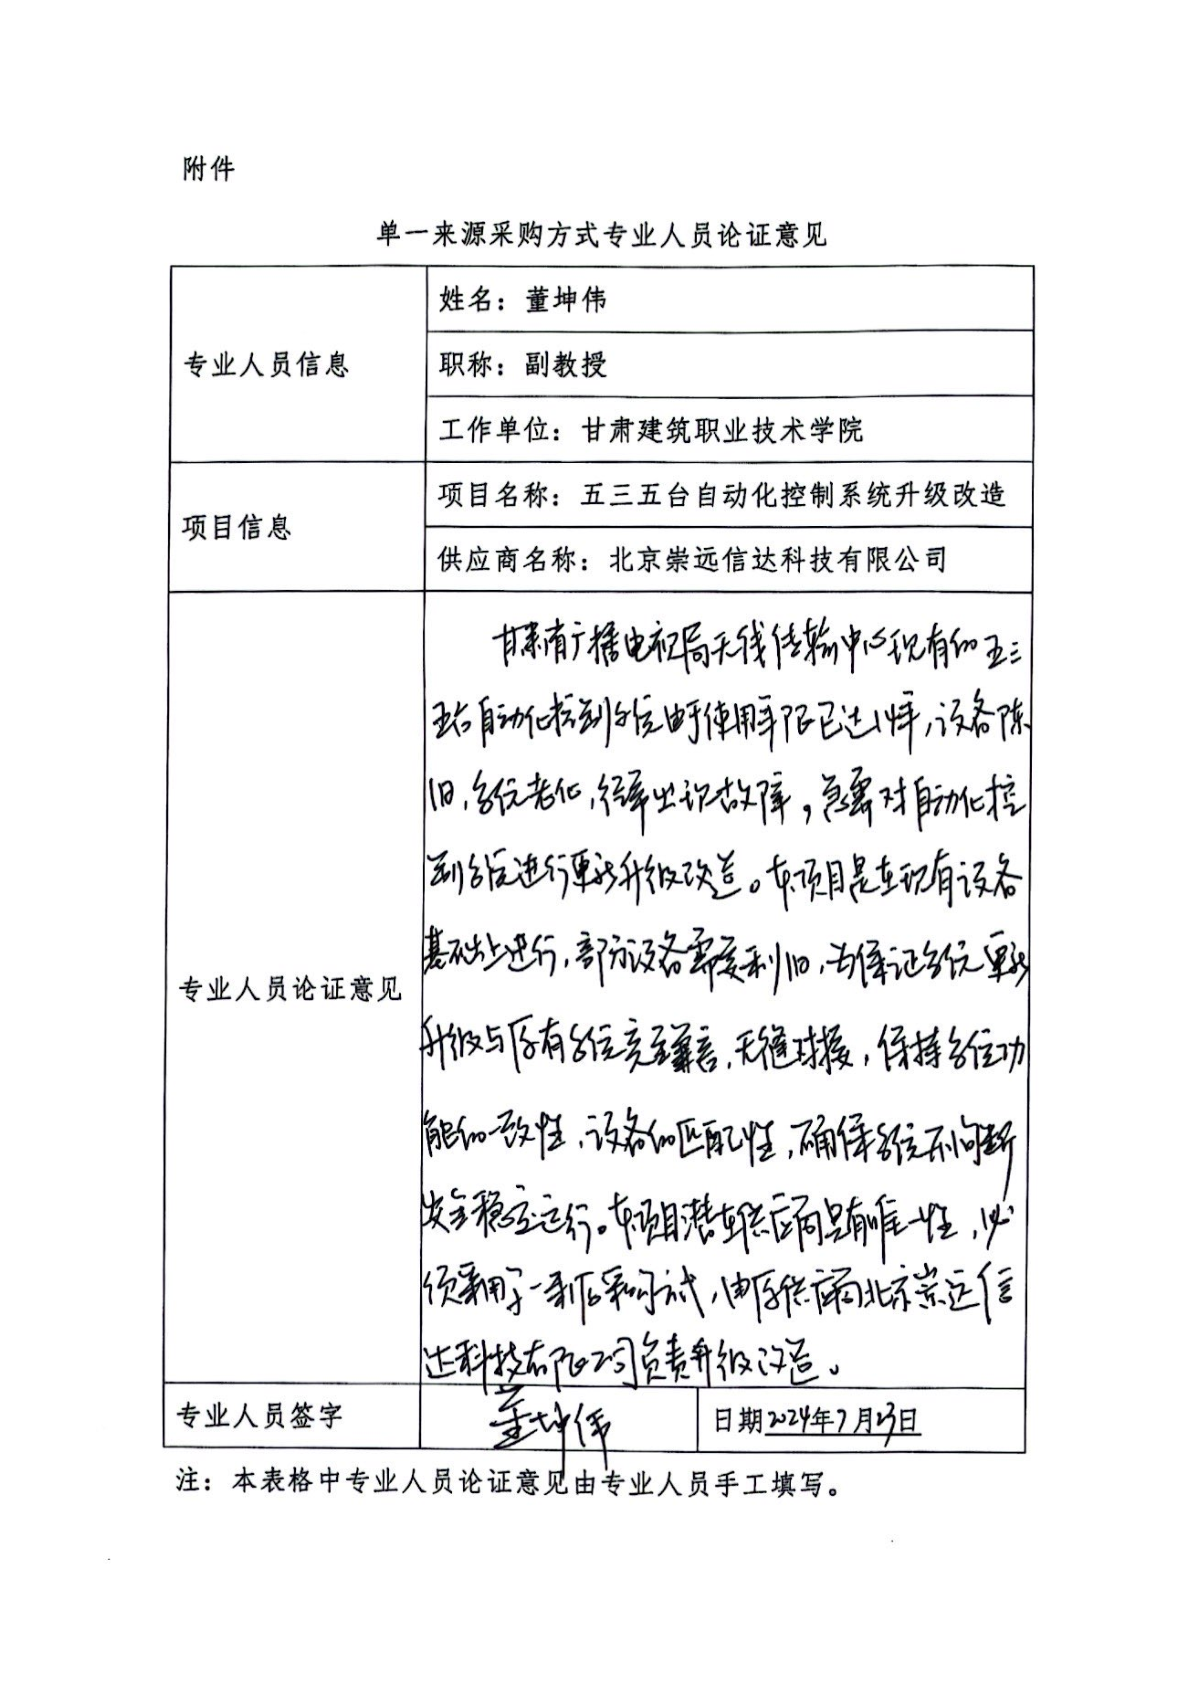 附件
单一来源采购方式专业人员论证意见
专业人员信息
姓名：董坤伟
职称：副教授
工作单位：甘肃建筑职业技术学院
项目信息
项目名称：五三五台自动化控制系统升级改造
供应商名称：北京崇远信达科技有限公司
专业人员论证意见
甘肃省广播电视局无线传输中心现有的五三
五台自动化控制系统由于使用年限已达年，设备陈
旧，系统老化，经常出现故障，急需对自动化控
制系统进行更新升级改造。本项目是在现有设备
基础上进行，部分设备需要利旧，为保证系统更新
升级与原有系统完全兼容，无缝对接，保持系统功
能的一致性，设备的匹配性，确保系统不间断
安全稳定运行。本项目潜在供应商具有唯一性，必
须采用单一来源采购方式，由原供应商北京崇远信
达科技有限公司负责升级改造。
专业人员签字
董坤伟
日期2024年7月23日
注：本表格中专业人员论证意见由专业人员手工填写。